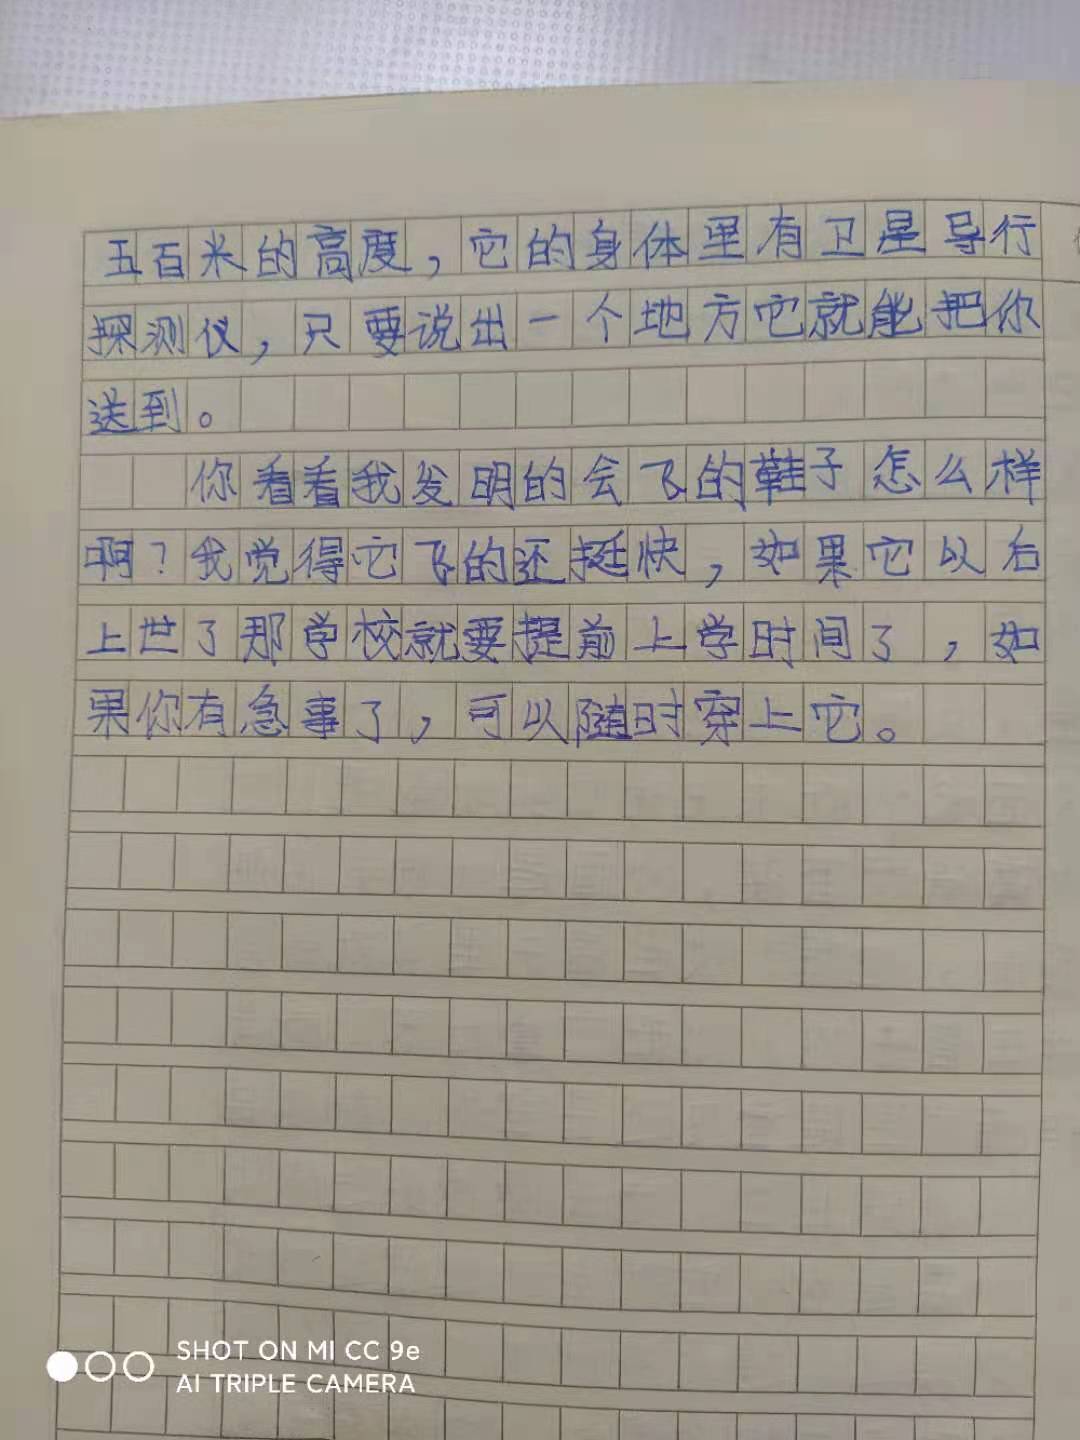 五百米的高度，它的身体里有卫星导行
探测仪，只要说出一个地方它就能把你
送到。
你看看我发明的会飞的鞋子怎么样
啊？我觉得它飞的还挺快，如果它以后
上世了那学校就要提前上学时间了，如
果你有急事了，可以随时穿上它。
SHOT ON MI CC 9e
AI TRIPLE CAMERA